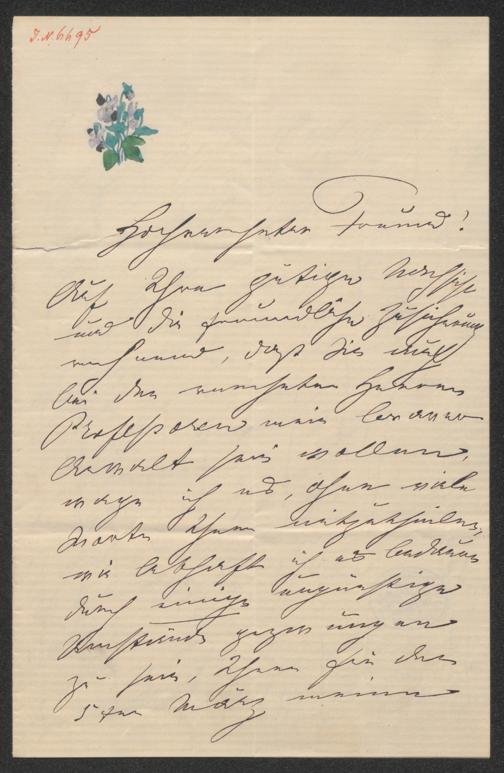 J.N. 6695
Hochverehrter Freund!
Auf Ihre gütige Nachsicht
und die freundliche Zusicherung
rechnend, daß Sie auch
bei den verehrten Herren
Professoren mein
Anwalt sein wollen,
wage ich es, ohne viele
Worte Ihnen mitzutheilen,
wie lebhaft ich es bedaure
durch einige ungünstige
Umstände gezwungen
zu sein, Ihnen für den
5ten März meine